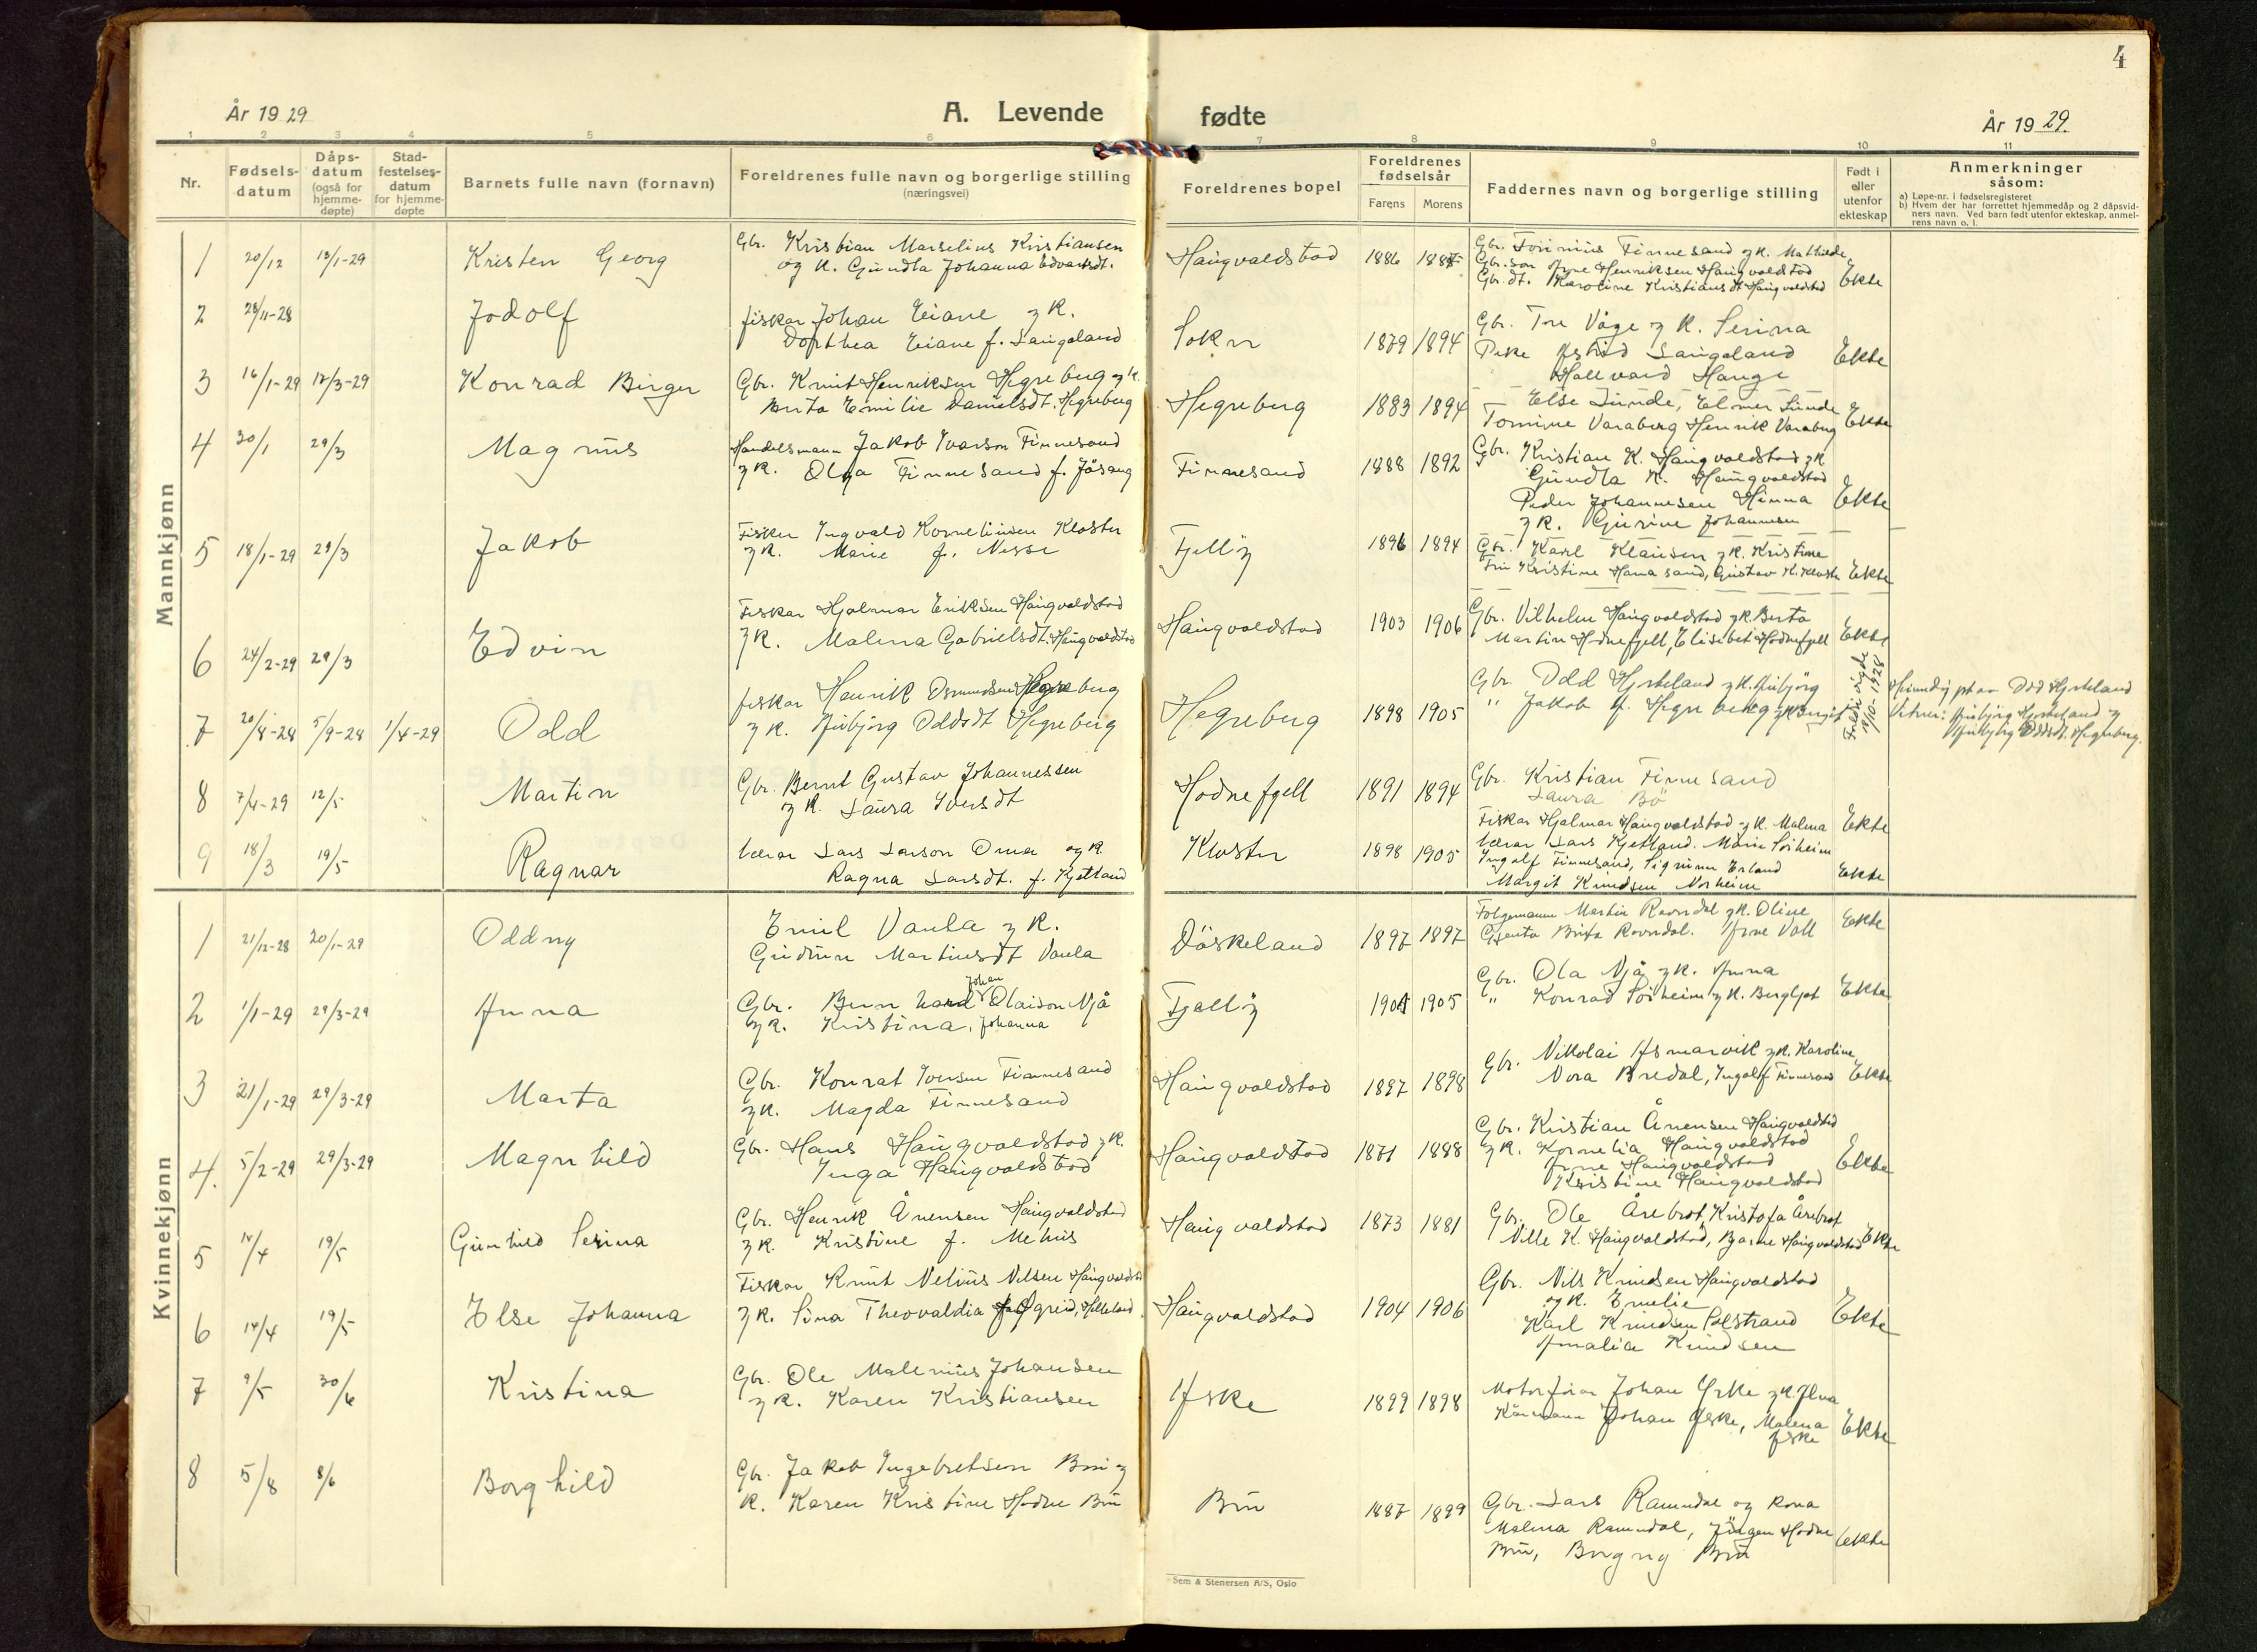 4
År 1929
A. Levende fødte
År 1929.
1 2 3 4 5 6 7 8 9 10 11
Nr.
Fødsels-
datum
Dåps-
datum
(også for
hjemme-
døpte)
Stad-
festelses-
datum
for hjemme-
døpte
Barnets fulle navn (fornavn)
Foreldrenes fulle navn og borgerlige stilling
(næringsvei)
Foreldrenes bopel
Foreldrenes
fødselsår
Farens Morens
Faddernes navn og borgerlige stilling
Født i
eller
utenfor
ekteskap
Anmerkninger
såsom:
a) Løpe-nr. i fødselsregisteret
b) Hvem der har forrettet hjemmedåp og 2 dåpsvid-
ners navn. Ved barn født utenfor ekteskap, anmel-
rens navn o. l.
Mannkjønn
1 20/12 13/1-29 Kristen Georg
Gbr. Kristian Marselius Kristiansen
og K. Gundla Johanna Edvardsdt.
Haugvaldstad 1886
Gbr. Finnesand og K. Mathilde
Gbr. son Arne Henriksen Haugvaldstad
Gbr. dt. Karoline Kristiansdt Haugvaldstad
Ekte
2 28/11-28 Jodolf
fiskar Johan Eiane og K.
Dorthea Eiane f. Langeland
Sokn 1879 1894
Gbr. Tore Våge og K. Serina
Pike Astrid Langeland
Hallvard Hauge
Ekte
3 16/1-29 17/3-29 Konrad Birger
Gbr. Knut Henriksen Hegreberg og K.
Berta Emilie Danielsdt. Hegreberg
Hegreberg 1883 1894
Else Lunde, Elmer Lunde
Tomine Varaberg Henrik Varaberg
Ekte
4 30/1 29/3 Magnus
Handelsmann Jakob Ivarson Finnesand
og K. Olga Finnesand f. Jåsang
Finnesand 1888 1892
Gbr. Kristian K. Haugvaldstad og K
Gundla K. Haugvaldstad
Peder Johannesen Hinna
og K. Gurine Johannesen
Ekte
5 18/1-29 29/3 Jakob
Fisker Ingvald Korneliusen Kloster
og K. Marie f. Nesse
Fjelløy 1896 1894
Gbr. Karl Klausen og K. Kristine
Fru Kristine Hanasand, Gustav K. Kloster
Ekte
6 24/2-29 29/3 Edvin
Fiskar Hjalmar Eriksen Haugvaldstad
og K. Malena Gabrielsdt. Haugvaldstad
Haugvaldstad 1903 1906
Gbr. Vilhelm Haugvaldstad og K. Berta
Martin Hodnefjell, Elisabet Hodnefjell
Ekte
7 20/8-28 5/9-28 1/4-29 Odd
fiskar Henrik Osmundsen Hegreberg
og K. Aubjörg Oddsdt Hegreberg
Hegreberg 1898 1905
Gbr. Odd Hjorteland og K. Aubjörg
" Jakob H. Hegreberg og K. Bergit
18/10-1928
Heimdøpt av Odd Hjorteland
Vitner: Aubjörg Hjorteland og
Aubjörg Oddsdt. Hegreberg.
8 7/4-29 12/5 Martin
Gbr. Bernt Gustav Johannessen
og K. Laura Iversdt
Hodnefjell 1891 1894
Gbr. Kristian Finnesand
Laura Bö
Fiskar Hjalmar Haugvaldstad og K. Malena
Ekte
9 18/3 19/5 Ragnar
Lærar Lars Larson Omo og K
Ragna Larsdt. f. Kjetland
Kloster 1898 1905
Lærar Lars Kjetland. Marie Söiheim
Ingolf Finnesand, Sigrunn Erland
Margit Knudsen Norheim
Ekte
Kvinnekjønn
1 21/12-28 20/1-29 Oddny
Emil Vaula og K.
Gudrun Martinsdt Vaula
Döskeland 1897 1897
Martin Ravndal og K. Oline
Gjenta Brita Ravndal. Arne Voll
Ekte
2 1/1-29 29/3-29 Anna
Johan
Gbr. Bernhard Olaison Njå
og K. Kristina, Johanna
Fjelløy 1901 1905
Gbr. Ola Njå og K. Anna
" Konrad Söiheim og K. Bergljot
Ekte
3 21/1-29 29/3-29 Marta
Gbr. Konrat Iversen Finnesand
og K. Magda Finnesand
Haugvaldstad 1897 1898
Gbr. Nikolai Asmarvik og K. Karoline
Nora Bredal, Ingolf Finnesand
Ekte
4. 5/2-29 29/3-29 Magnhild
Gbr. Hans Haugvaldstad og K.
Inga Haugvaldstad
Haugvaldstad 1871 1888
Gbr. Kristian Ånensen Haugvaldstad
og K. Kornelia Haugvaldstad
Arne Haugvaldstad
Kristine Haugvaldstad
Ekte
5 14/4 19/5 Gunhild Serina
Gbr. Henrik Ånensen Haugvaldstad
og K. Kristine f. Mehus
Haugvaldstad 1873 1881
Gbr. Ole Årebrot, Kristofa Årebrot
Nille K. Haugvaldstad, Bjarne Haugvaldstad
Ekte
6 14/4 19/5 Else Johanna
Fiskar Knut Nelius Nilsen Haugvaldstad
og K. Sina Theovaldia Helleland
Haugvaldstad 1904 1906
Gbr. Nils Knudsen Haugvaldstad
og K. Emelie
Karl Knudsen Solstrand
Amalia Knudsen
Ekte
7 9/5 30/6 Kristina
Gbr. Ole Malenius Johansen
og K. Karen Kristiansen
Aske 1899 1898
Motorførar Johan Yrke og K. Alva
Kårmann Johan Aske, Malena
Aske
Ekte
8 5/8 8/6 Borghild
Gbr. Jakob Ingebretsen Bru og
K. Karen Kristine Hodne Bru
Bru 1887 1899
Gbr. Lars Ramndal og Kona
Malena Ramndal, Jörgen Hodne
Bru, Bru
Ekte
Sem & Stenersen A/S, Oslo